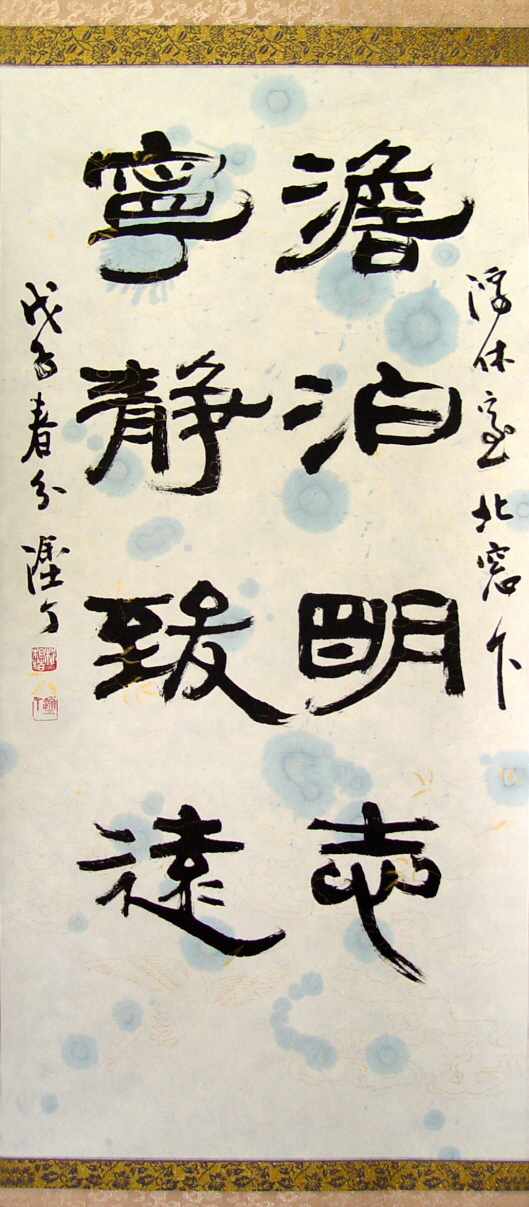 浮休室北窓下
澹泊明志
寧靜致遠
戊子春分